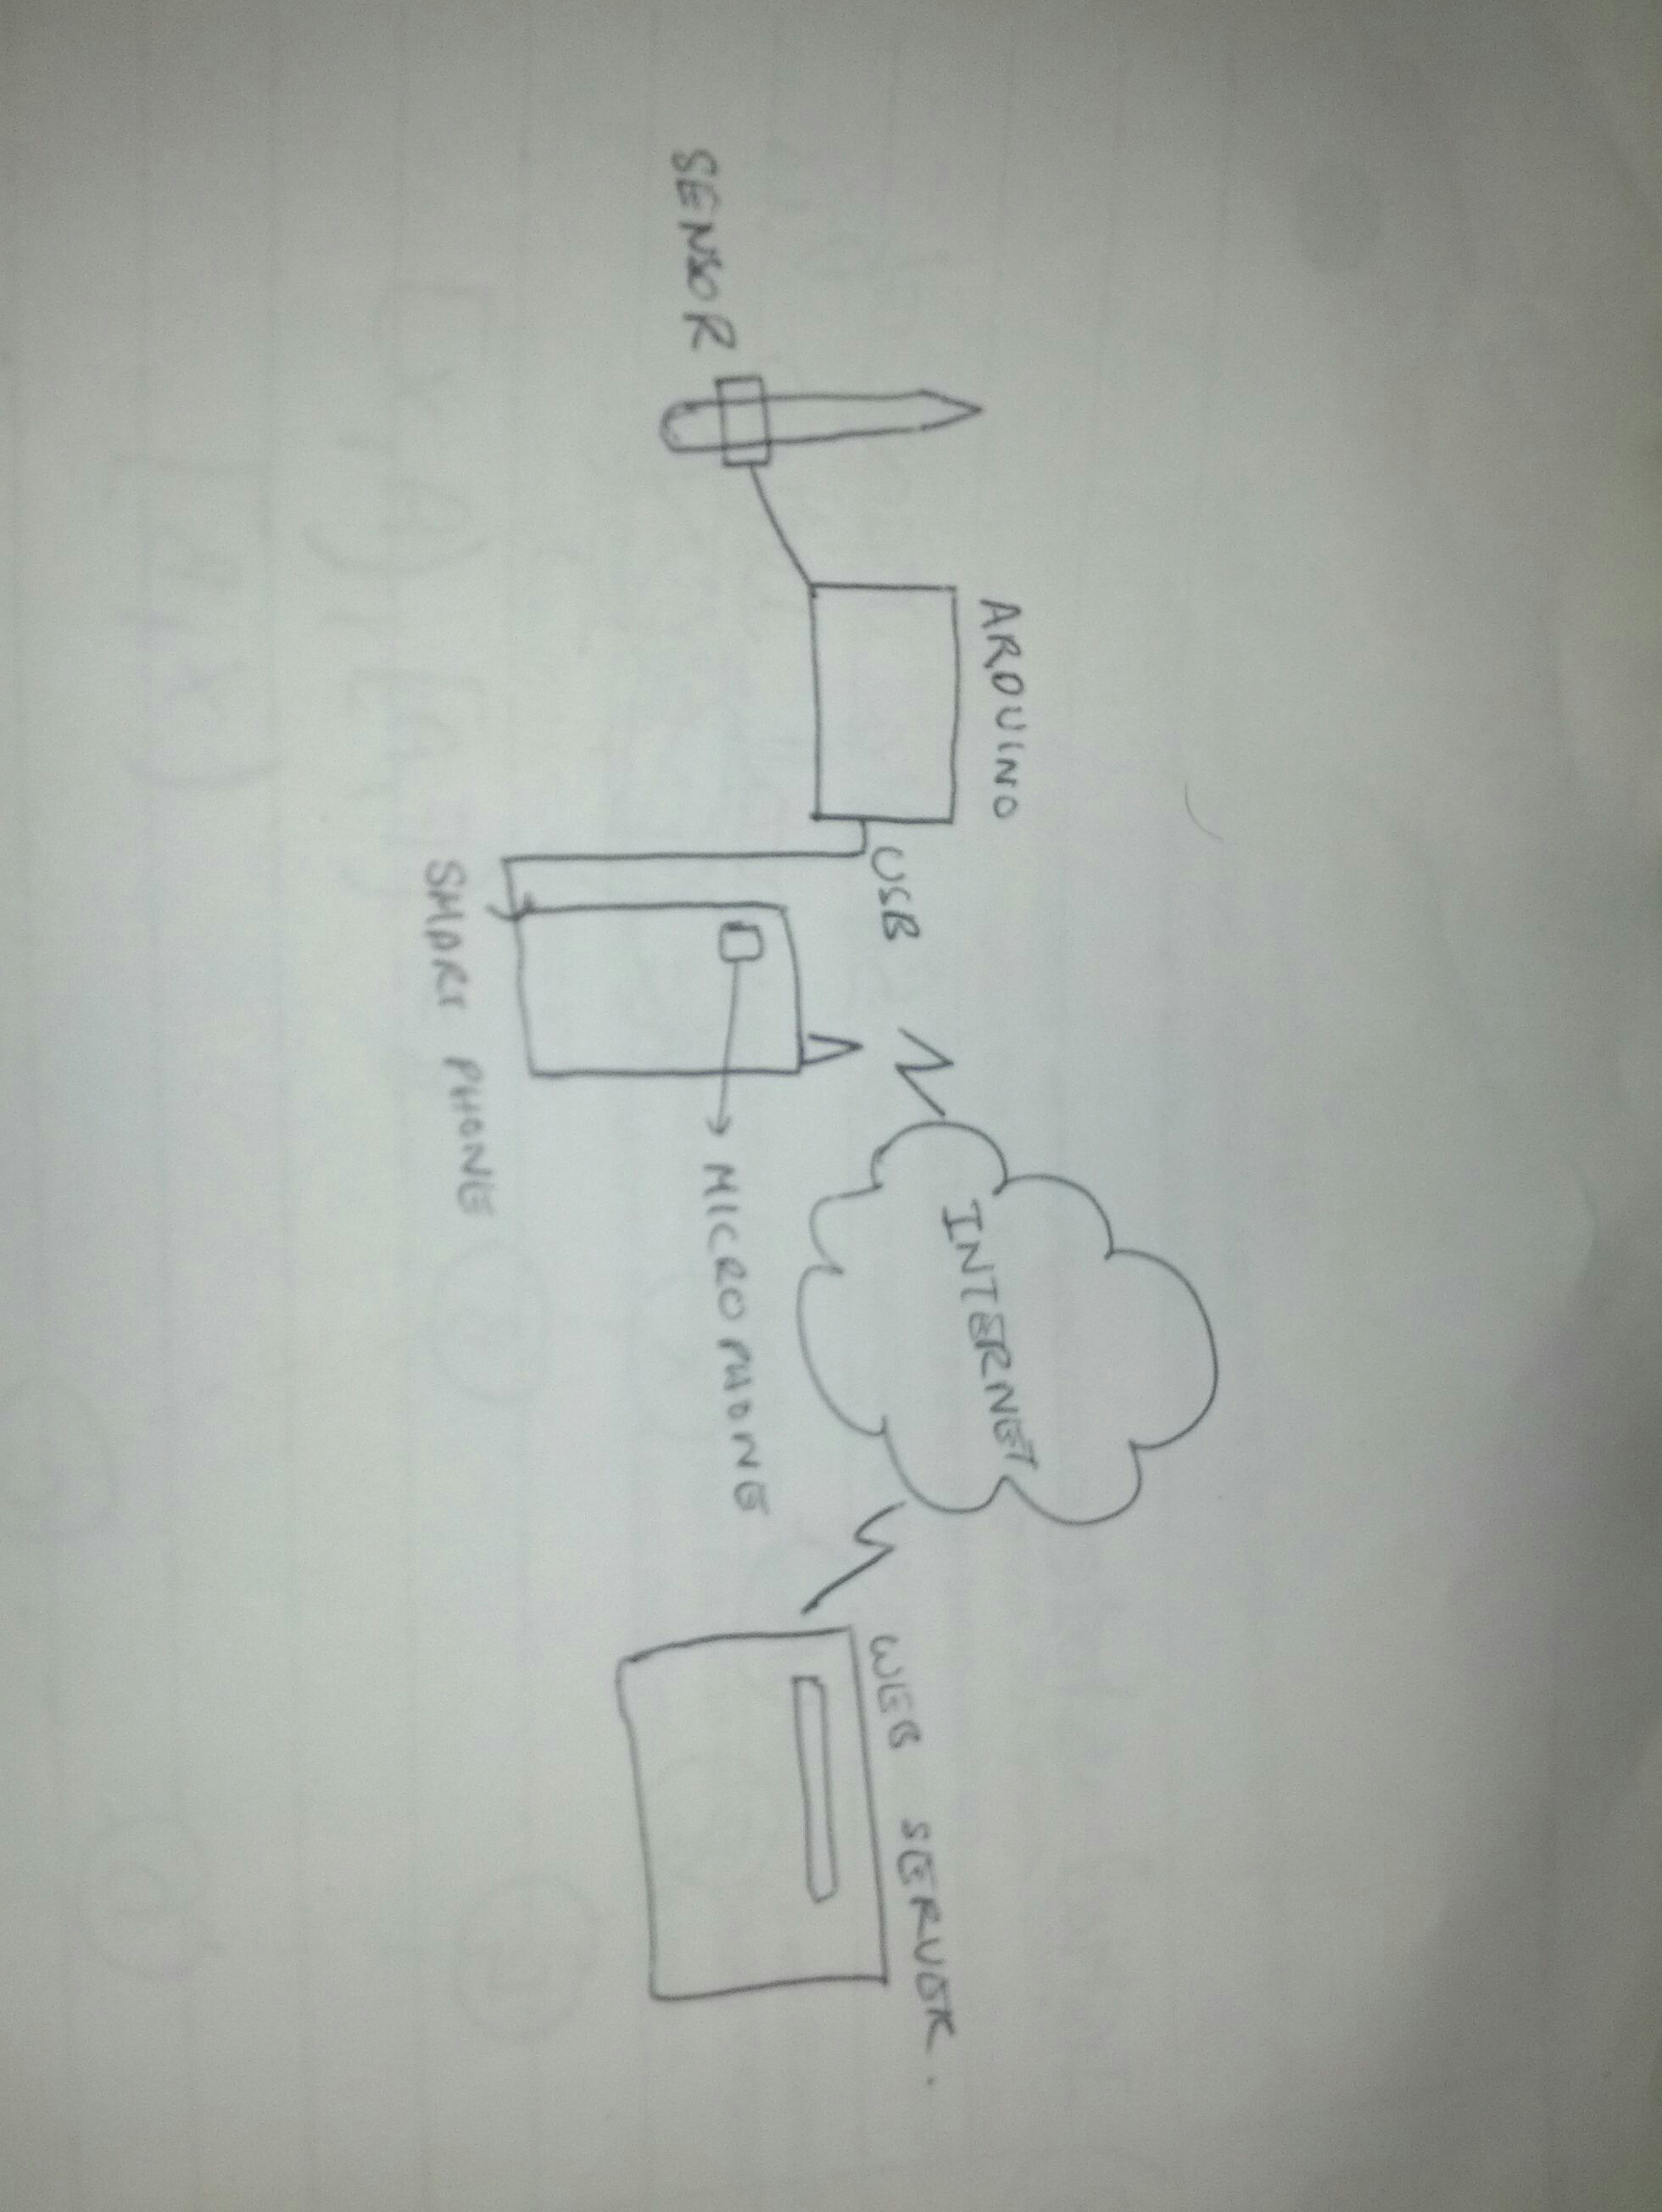 SENSOR
ARDUINO
USB
SMART PHONE
MICROPHONE
INTERNET
WEB SERVER.